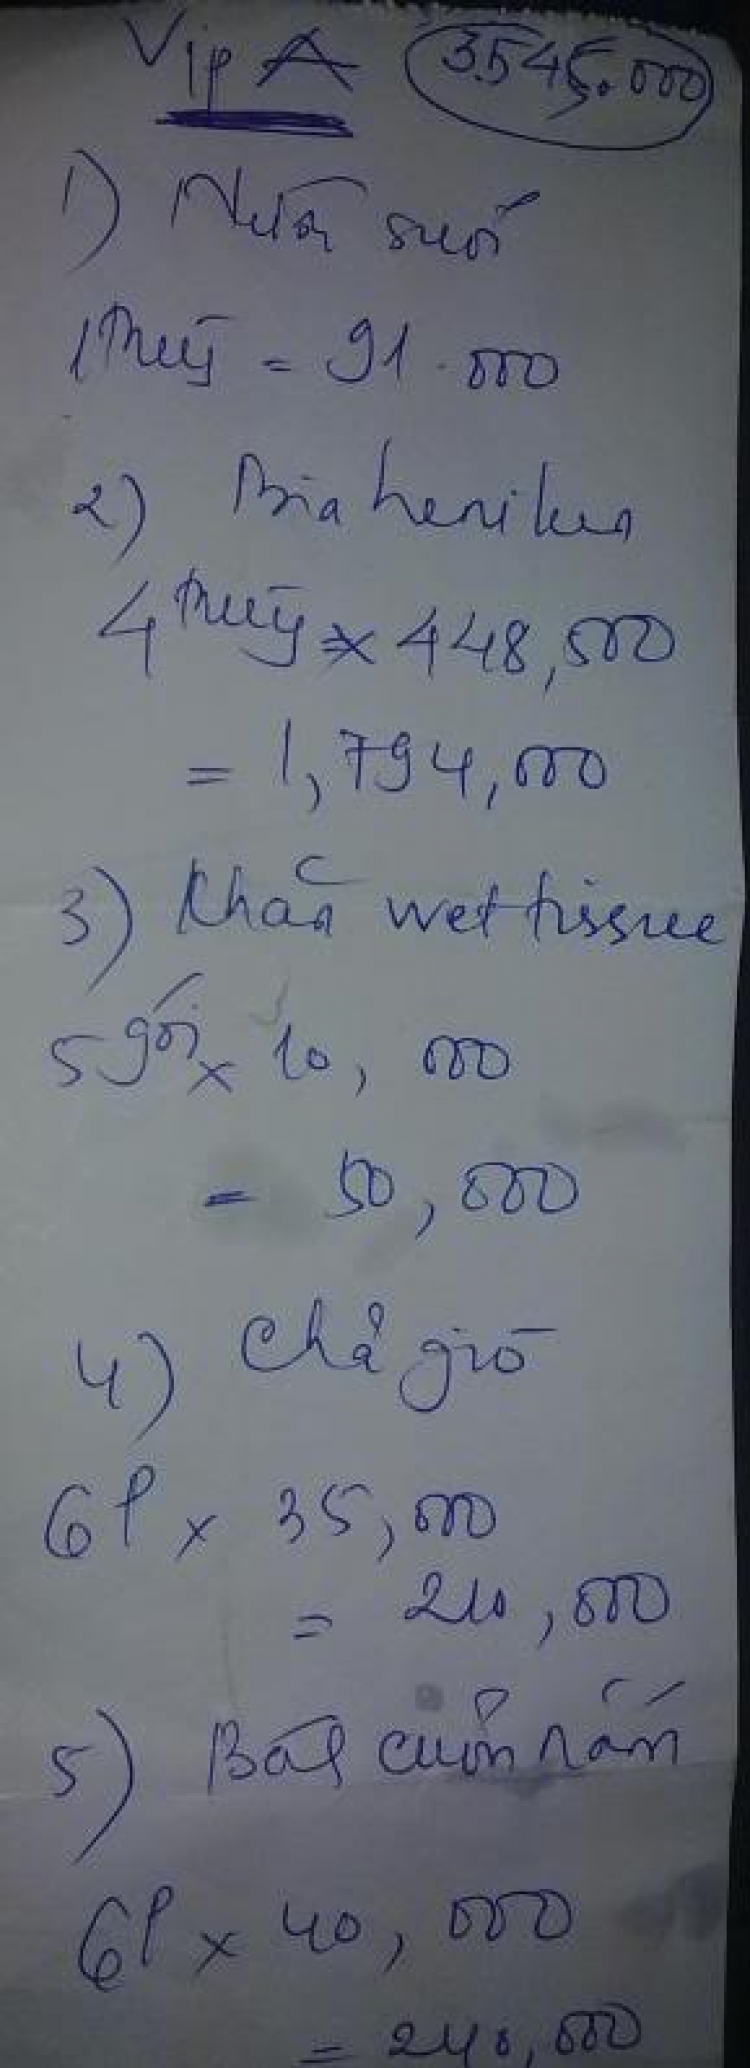 Vip A 3.545.000
1) Nước suối
1 thùng = 91.000
2) Bia heniken
4 thùng x 448,500
= 1,794,000
3) Khăn wet tissue
5 gói x 10,000
= 50,000
4) Chả giò
6P x 35,000
= 210,000
5) Bò cuốn nấm
6P x 40,000
= 240,000